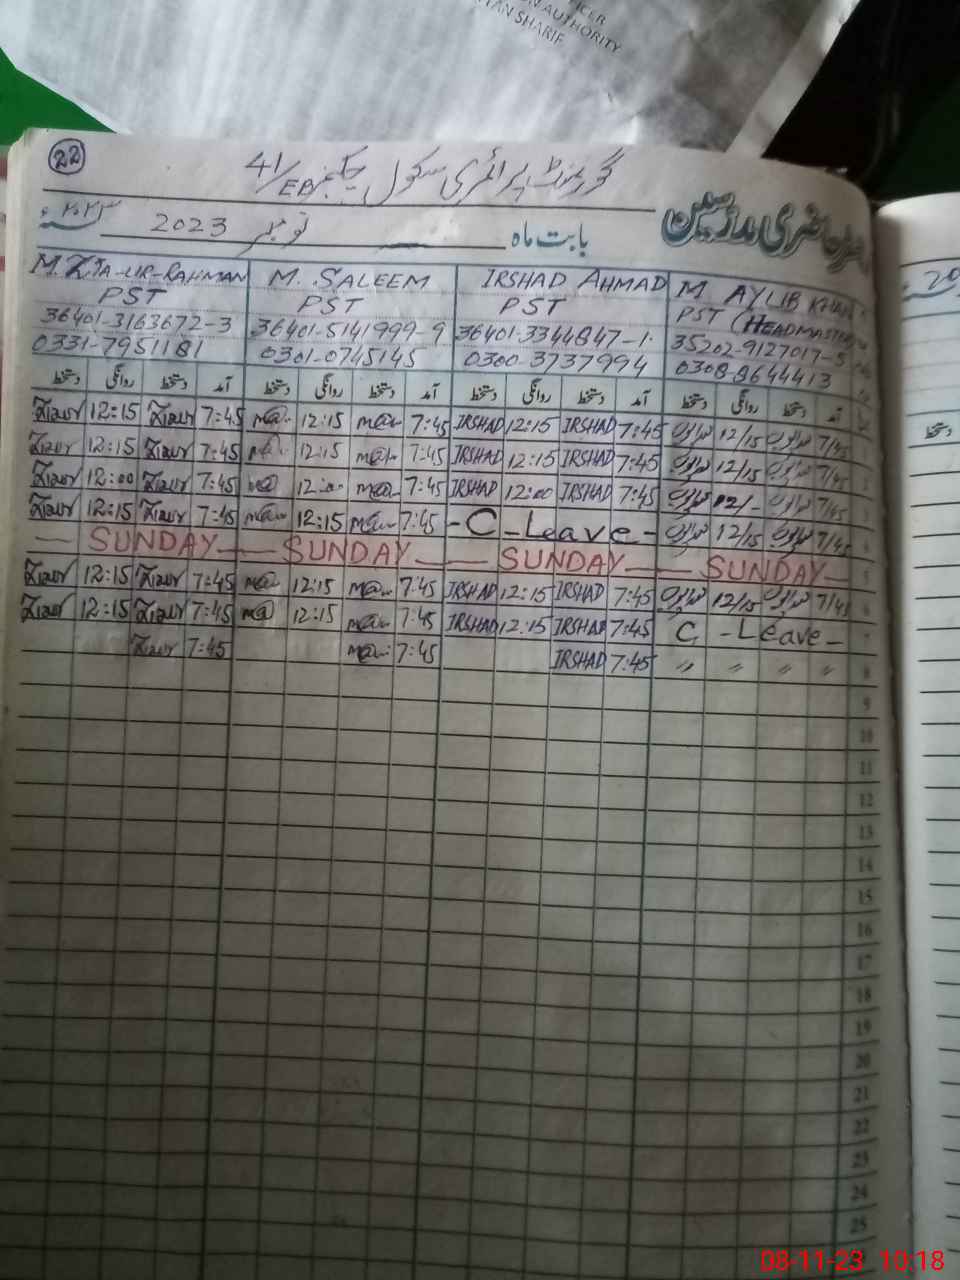 ICER
ON AUTHORITY
TAN SHARIF
22
گورنمنٹ پرائمری سکول چک نمبر 41/EB
حاضری مدرسین
بابت ماہ نومبر 2023 ۲۰۲۳ء
M. ZIA-UR-RAHMAN M. SALEEM IRSHAD AHMAD M AYUB KHAN
PST PST PST PST (HEADMASTER
36401-3163672-3 36401-5141999-9 36401-3344847-1 35202-9127017-5
0331-7951181 0301-0745145 0300-3737994 0308-8644413
دستخط روانگی دستخط آمد دستخط روانگی دستخط آمد دستخط روانگی دستخط آمد دستخط روانگی دستخط آمد
12:15 7:45 12:15 7:45 IRSHAD 12:15 IRSHAD 7:45 12/15 7/45
12:15 7:45 12:15 7:45 IRSHAD 12:15 IRSHAD 7:45 12/15 7/45
12:00 7:45 12:00 7:45 IRSHAD 12:00 IRSHAD 7:45 12/- 7/45
12:15 7:45 12:15 7:45 - C - Leave - 12/15 7/45
— SUNDAY — — SUNDAY — — SUNDAY — — SUNDAY —
12:15 7:45 12:15 7:45 IRSHAD 12:15 IRSHAD 7:45 12/15 7/45 6
12:15 7:45 12:15 7:45 IRSHAD 12:15 IRSHAD 7:45 C - Leave - 7
7:45 7:45 IRSHAD 7:45 〃 〃 〃 〃 8
9
10
11
12
13
14
15
16
17
18
19
20
21
22
23
24
25
20
دستخط
08-11-23 10:18